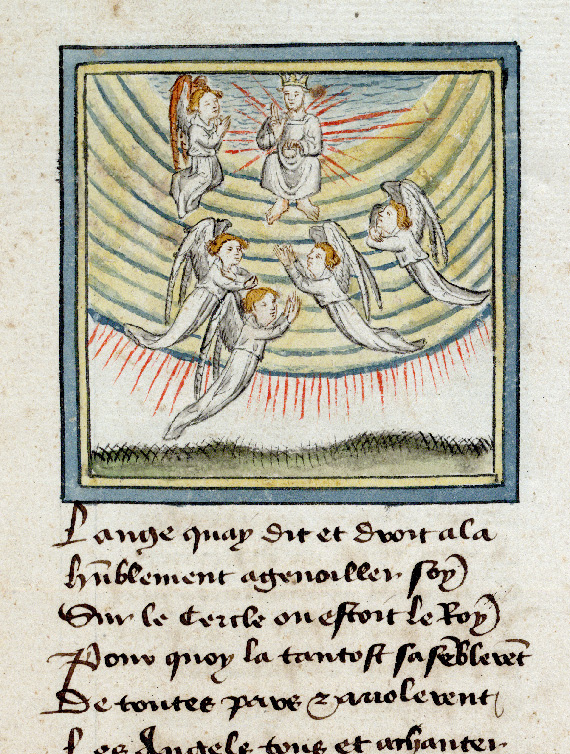 Lange quay dit et droit ala
hūblement agenoiller soy
Sur le Cercle ou estoit le Roy
Pour quoy la tantost sasēblerēt
De toutes pars & auolerent
Les Angels tous et achanter